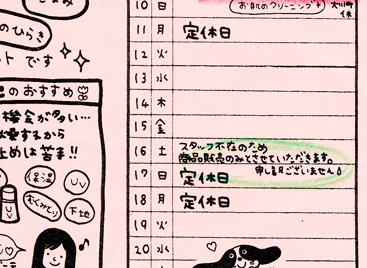 10 日 お肌のクリーニング
のひらき
11 月 定休日
ト です
12 火
のおすすめ
13 水
機会が多い…
14 木
するから
15 金
止めは苦手!!
16 土 スタッフ不在のため
商品販売のみとさせていただきます。
申し訳ございません
保湿
UV
17 日 定休日
むくみとり
下地
18 月 定休日
19 火
20 水